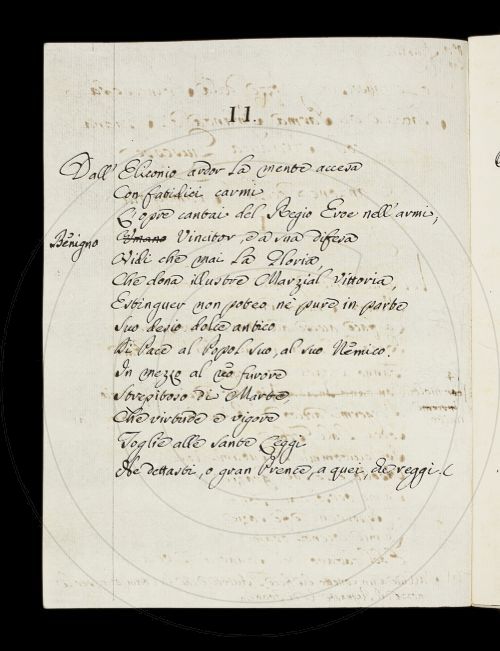 II.
Dall' Eliconio ardor la mente accesa
Con fatidici carmi
L'opre cantai del Regio Eroe nell'armi,
Benigno Umano Vincitor, e a sua difesa
Vidi che mai la Gloria,
Che dona illustre Marzial Vittoria,
Estinguer non poteo nè pure in parte
Suo desio dolce antico
Di Pace al Popol suo, al suo Nemico.
In mezzo al reo furore
Strepitoso di Marte,
Che virtude e vigore
Toglie alle sante Leggi
Ne dettasti, o gran Prence, a quei, che reggi.